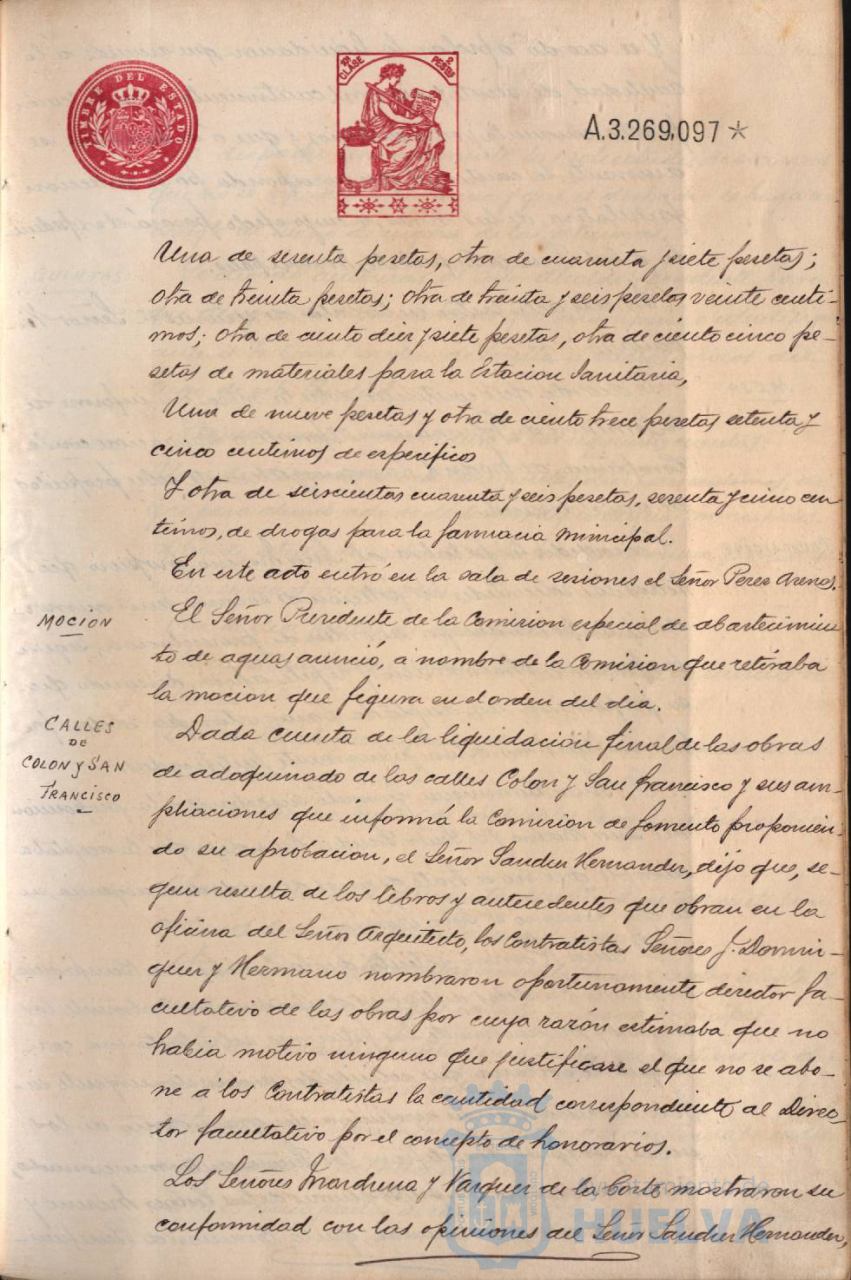 TIMBRE DEL ESTADO
CLASE
PESETAS
A.3.269,097 *
Una de sesenta pesetas, otra de cuarenta y siete pesetas;
otra de treinta pesetas; otra de treinta y seis pesetas veinte centi-
mos; otra de ciento diez y siete pesetas, otra de ciento cinco pe-
setas de materiales para la Estacion Sanitaria,
Una de nueve pesetas y otra de ciento trece pesetas setenta y
cinco centimos de especificos
Y otra de seiscientas cuarenta y seis pesetas, sesenta y cinco cen
timos, de drogas para la farmacia municipal.
En este acto entró en la sala de sesiones el Señor Perez
MOCIÓN
El Señor Presidente de la Comision especial de abastecimien
to de aguas anunció, a nombre de la Comision que retiraba
la mocion que figura en el orden del dia.
CALLES
DE
COLON Y SAN
FRANCISCO
Dada cuenta de la liquidación final de las obras
de adoquinado de las calles Colon y San Francisco y sus am-
pliaciones que informá la Comision de fomento proponien-
do su aprobacion, el Señor Sanchez Hernandez, dijo que, se-
gun resulta de los libros y antecedentes que obran en la
oficina del Señor Arquitecto, los Contratistas Señores J. Domin-
guez y Hermano nombraron oportunamente director fa-
cultativo de las obras por cuya razón estimaba que no
habia motivo ninguno que justificase el que no se abo-
ne á los Contratistas la cantidad correspondiente al Direc-
tor facultativo por el concepto de honorarios.
Los Señores Mardrena y Vazquez de la Corte mostraron su
conformidad con las opiniones del Señor Sanchez Hernandez,
Ayuntamiento de
HUELVA